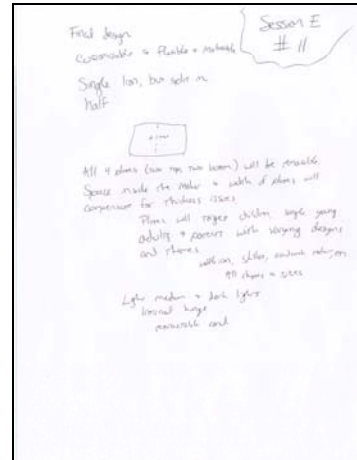 Session E
# 11
Final design
customizable + flexible +
Single Iron, but split in
half
All 4 plates (two top two bottom) will be removable.
Space inside the maker + width of plates will
compensate for thickness issues.
Plates will target children, single young
adults + parents with varying designs
and themes.
waffle iron, griddle, sandwich maker,
All shapes + sizes
Light medium + dark lights
hinge
retractable cord